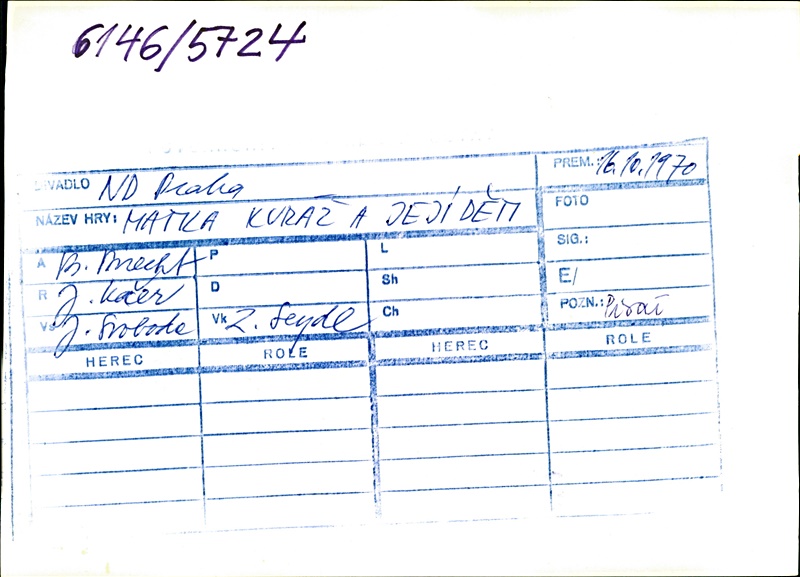 6146/5724
DIVADLO ND Praha
PREM.: 16.10.1970
NÁZEV HRY: MATKA KURÁŽ A JEJÍ DĚTI
FOTO
SIG.:
E/
POZN.:
A B. Brecht P L
R J. Kačer D Sh
Vs J. Svoboda Vk Z. Seydl Ch
HEREC ROLE HEREC ROLE